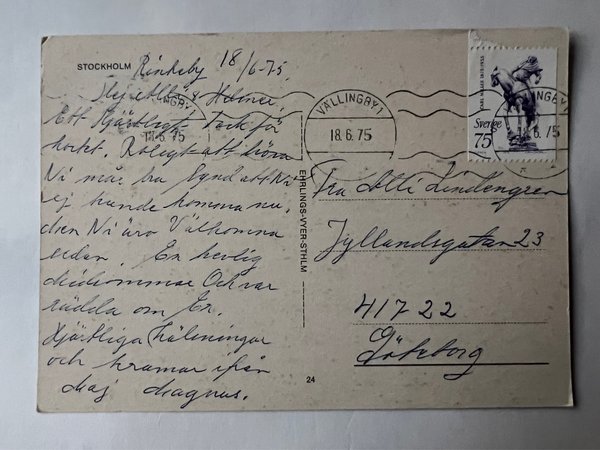 STOCKHOLM
Rinkeby 18/6-75.
Hej Atlli & Helmer.
Ett Hjärtligt tack för
kortet. Roligt att höra
Ni mår bra Synd att Ni
ej kunde komma nu,
Men Ni äro Välkomna
sedan. En hevlig
Midsommar Och var
rädda om Er.
Hjärtliga Hälsningar
och kramar ifrån
Maj Magnus.
EHRLINGS-VYER-STHLM
24
VÄLLINGBY 1
18.6.75
Sverige
75
Fru Atli Lindengren
Jyllandsgatan 23
417 22
Göteborg